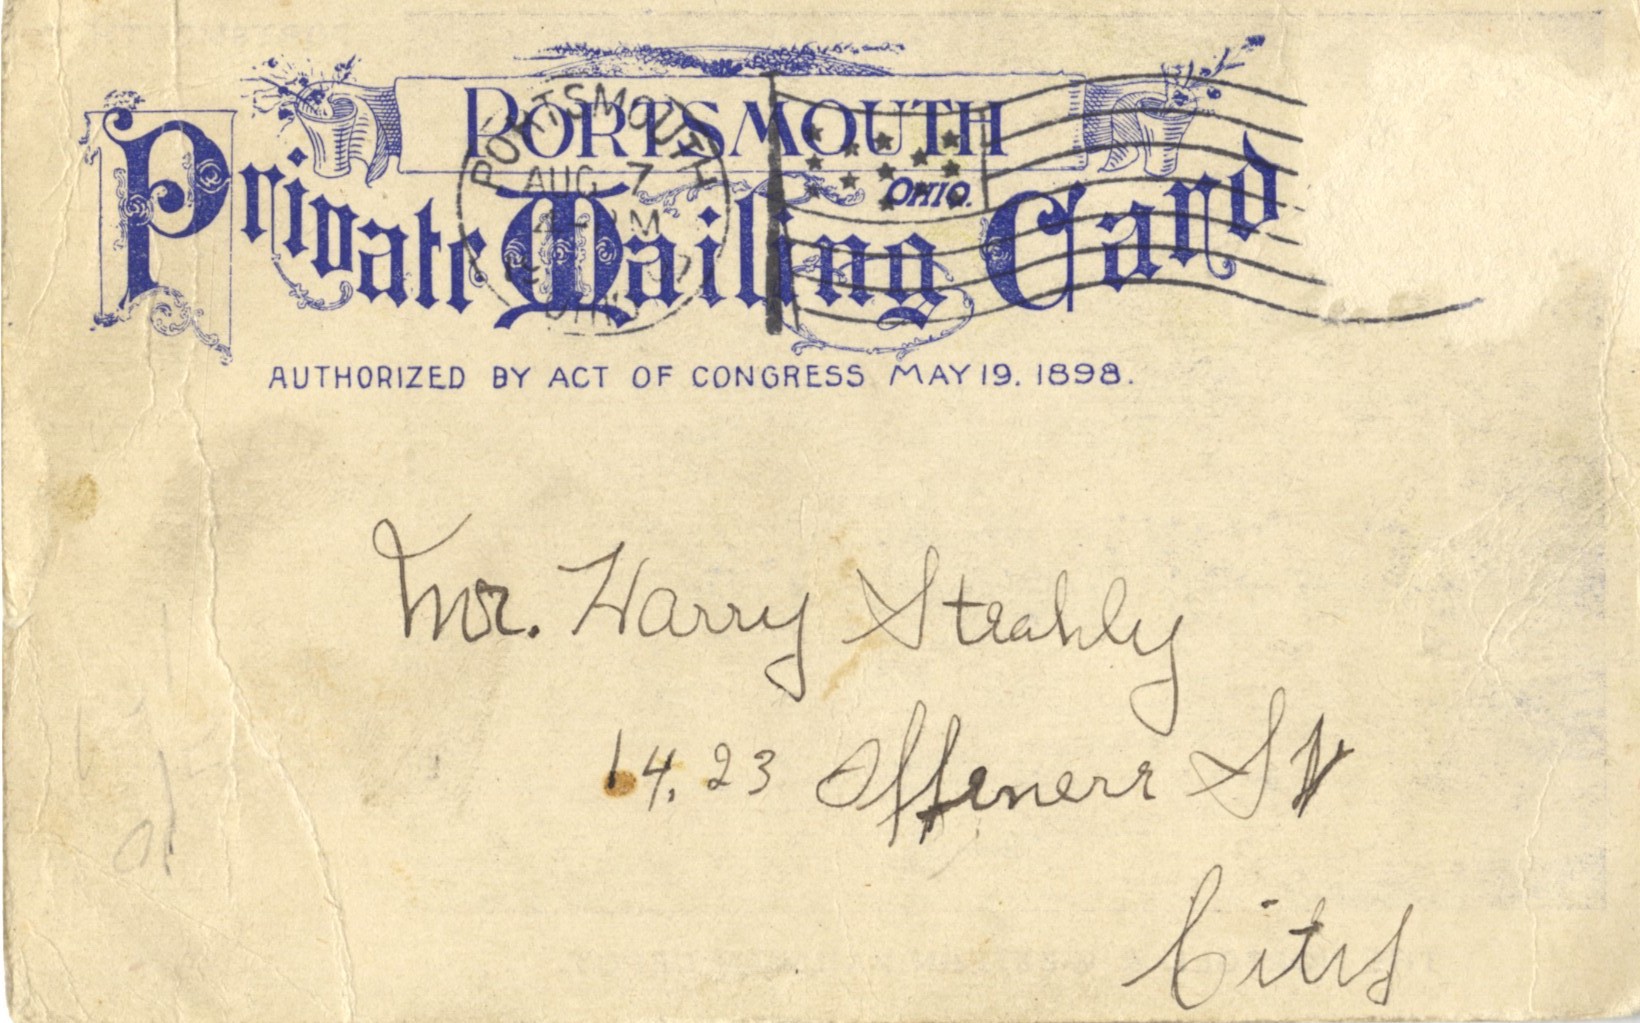 PORTSMOUTH
OHIO.
Private Mailing Card
AUTHORIZED BY ACT OF CONGRESS MAY 19. 1898.
PORTSMOUTH
AUG 7
Mr. Harry Strahly
14.23 Offenere St
City